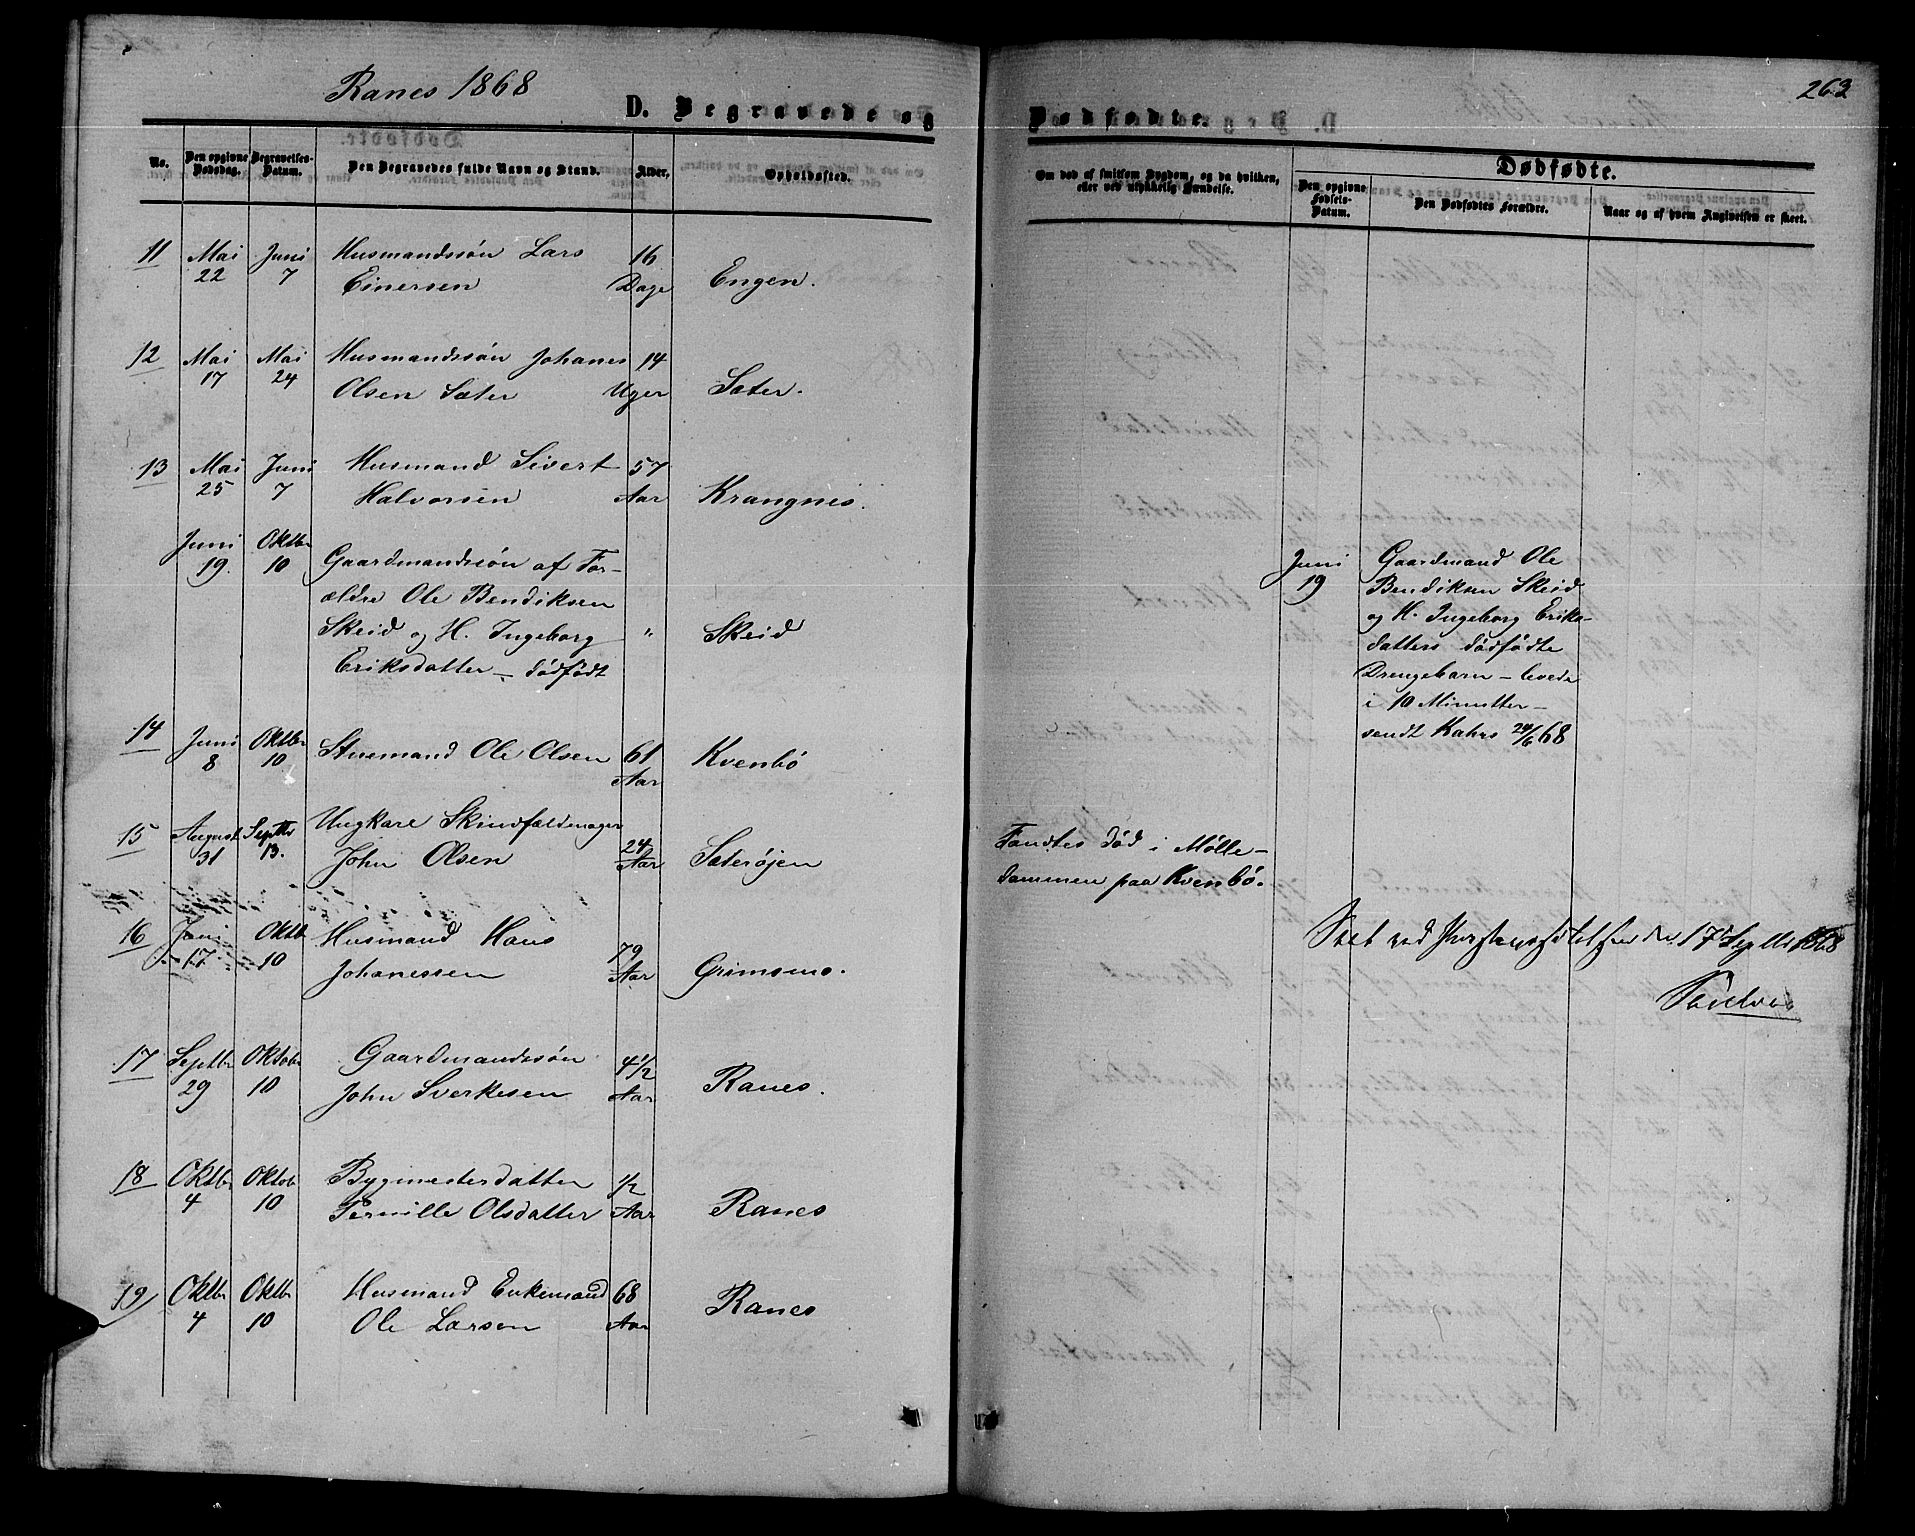 Ranes 1868
263
D. Begravede og
Dødfødte.
No.
Den opgivne Dødsdag.
Begravelses-Datum.
Den Begravedes fulde Navn og Stand.
Alder.
Opholdssted.
Om død af smitsom Sygdom, og da hvilken, eller ved ulykkelig Hændelse.
Dødfødte.
Den opgivne Fødsels-Datum.
Den Dødfødtes Forældre.
Naar og af hvem Angivelsen er skeet.
11 Mai Juni Husmandssön Lars 16
22 7 Einersen Dage Engen.
12 Mai Mai Husmandssön Johanes 14
17 24 Olsen Sæter Uger Sæter.
13 Mai Juni Husmand Sivert 57
25 7 Halvorsen Aar Krangnes.
Juni Oktbr
19. 10 Gaardmandssön af For-
ældre Ole Bendiksen
Skeid og H. Ingeborg " Skeid
Eriksdatter – dödfödt
Juni Gaardmand Ole
19 Bendiksen Skeid
og H. Ingeborg Eriks-
datters dödfödte
Drengebarn – levede
i 10 Minutter –
sendt Kahrs 24/6 68
14 Juni Oktbr Stuemand Ole Olsen 61 Kvenbö
8 10 Aar
15 August Septbr Ungkarl Skindfældmager 24
31 13. John Olsen Aar Sæterøjen
Fandtes död i Mölle-
dammen paa Kvenbö.
16 Juni Oktb Husmand Hans 79
17 10 Johanessen Aar Grimsmo.
Seet ved den 17 Septbr 1868
17 Septbr Oktober Gaardmandssön 4 1/2
29 10 John Sverkesen Aar Ranes.
18 Oktbr Oktob Bygmesterdatter 1/2
4 10 Pernille Olsdatter Aar Ranes
19 Oktbr Oktbr Husmand Enkemand 68 Ranes
4 10 Ole Larsen Aar